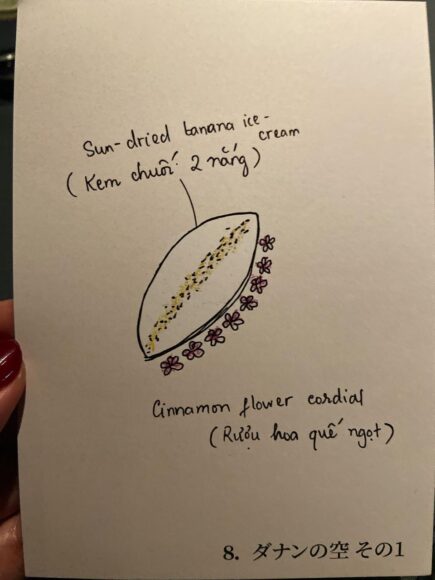 Sun-dried banana ice-
cream
(Kem chuối 2 nắng)
Cinnamon flower cordial
(Rượu hoa quế ngọt)
8. ダナンの空 その1